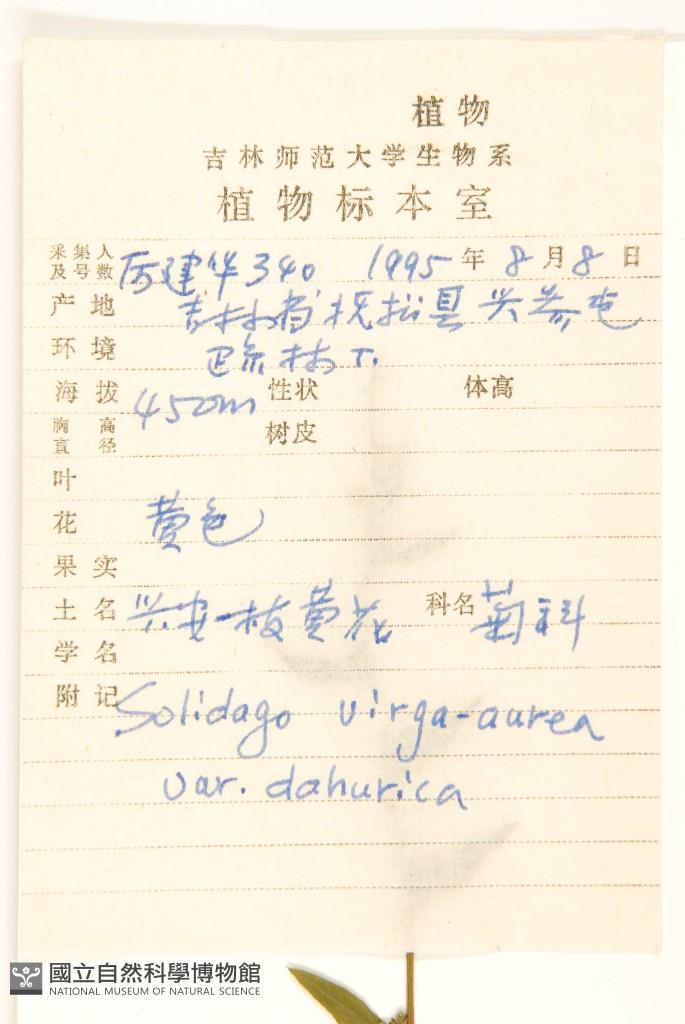 植物
吉林师范大学生物系
植物标本室
采集人及号数 厉建华 340 1995 年 8 月 8 日
产地 吉林省抚松县兴参屯
环境 林下.
海拔 450m 性状 体高
胸高直径 树皮
叶
花 黄色
果实
土名 兴安一枝黄花 科名 菊科
学名
附记 Solidago virga-aurea
var. dahurica
國立自然科學博物館
NATIONAL MUSEUM OF NATURAL SCIENCE